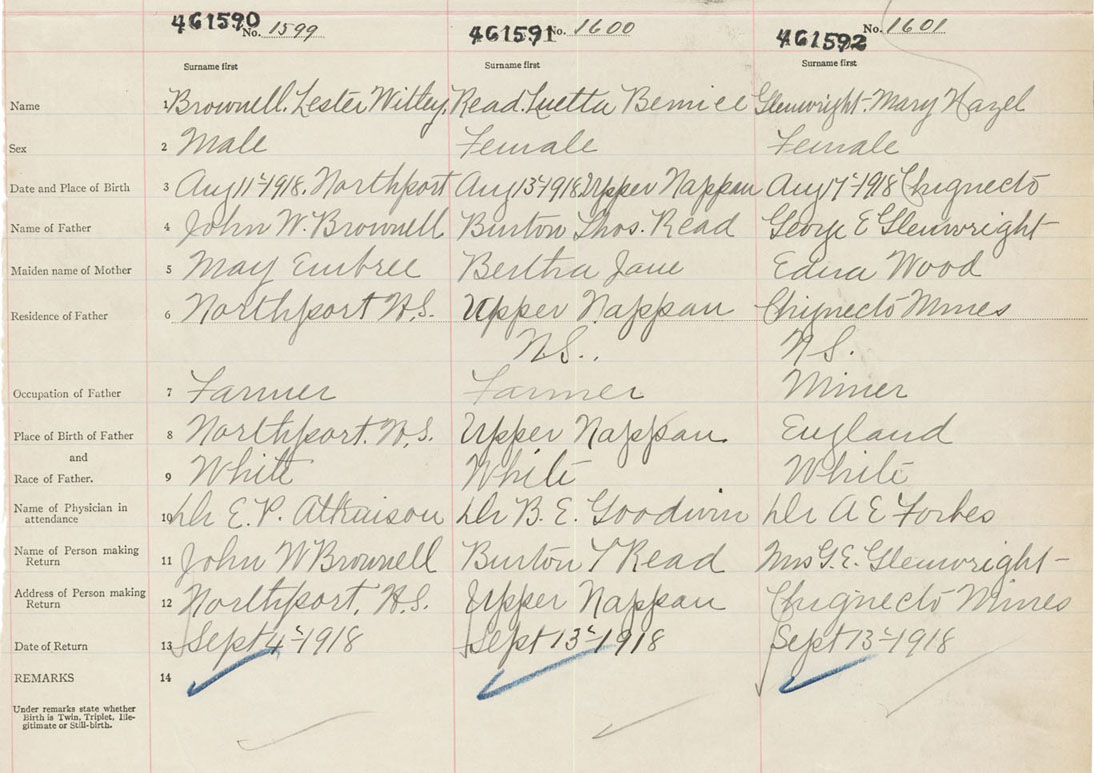 461590 No. 1599 461591 No. 1600 461592 No. 1601
Surname first Surname first Surname first
Name 1 Brownell. Lester Wittey. Read. Luetta Bernice Glenwright- Mary Hazel
Sex 2 Male Female Female
Date and Place of Birth 3 Aug 11th-1918. Northport Aug 13th-1918 Upper Nappan Aug 17th-1918 Chignecto
Name of Father 4 John W. Brownell Burton Thos. Read George E Glenwright
Maiden name of Mother 5 May Embree Bertha Jane Edna Wood
Residence of Father 6 Northport N.S. Upper Nappan Chignecto Mines
N.S.. N.S.
Occupation of Father 7 Farmer Farmer Miner
Place of Birth of Father 8 Northport. N.S. Upper Nappan. England
and
Race of Father. 9 White White White
Name of Physician in
attendance 10 Dr E. P. Atkinson Dr B. E. Goodwin Dr A E Forbes
Name of Person making
Return 11 John W Brownell Burton T Read Mrs G. E. Glenwright-
Address of Person making
Return 12 Northport, N.S. Upper Nappan Chignecto Mines
Date of Return 13 Sept 4th-1918 Sept 13th-1918 Sept 13th-1918
REMARKS 14
Under remarks state whether
Birth is Twin, Triplet, Ille-
gitimate or Still-birth.